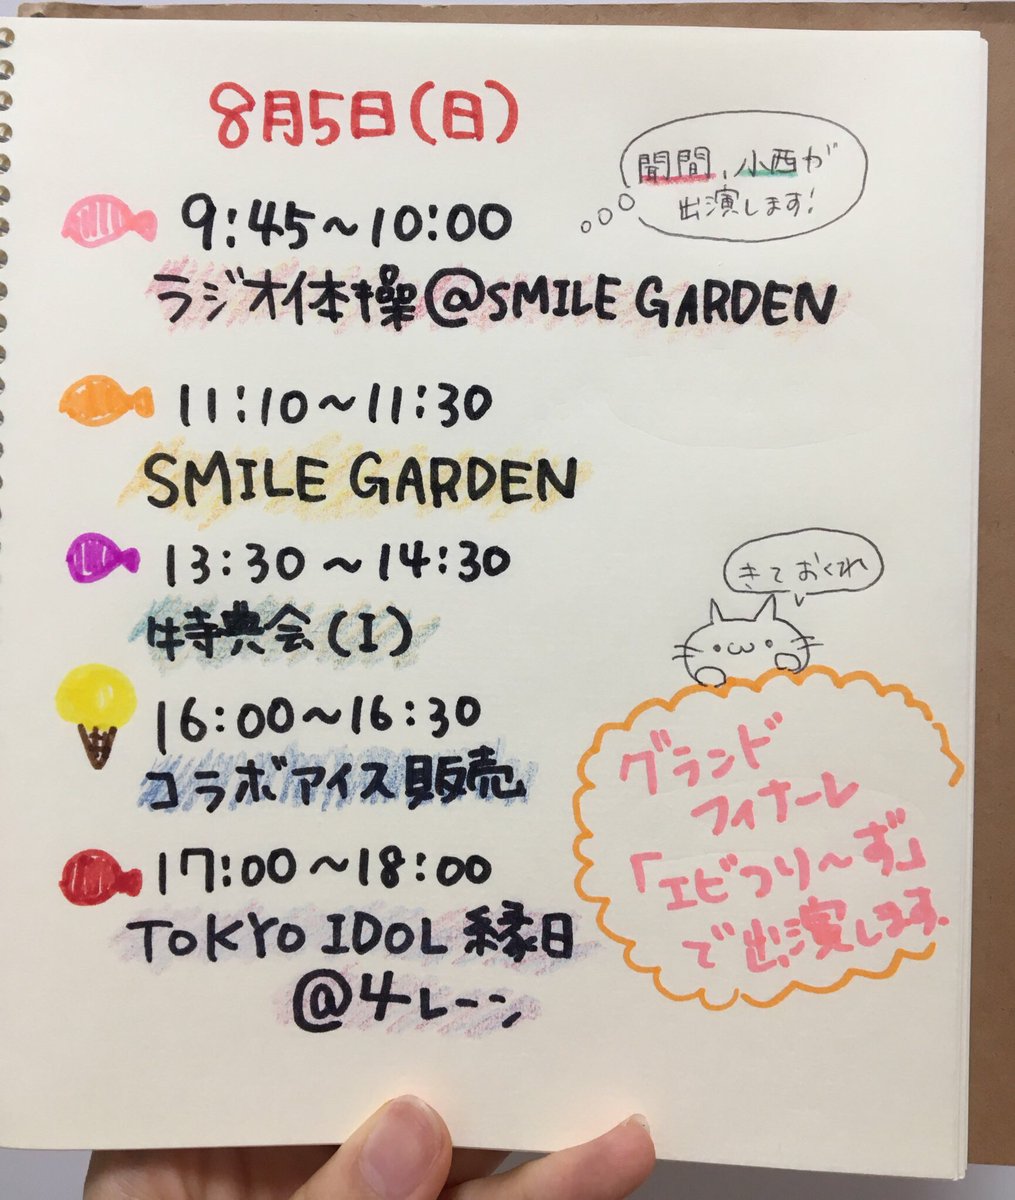 8月5日(日)
聞間、小西が
出演します!
9:45~10:00
ラジオ体操@SMILE GARDEN
11:10~11:30
SMILE GARDEN
13:30~14:30
特典会(I)
16:00~16:30
コラボアイス販売
17:00~18:00
TOKYO IDOL 縁日
@4レーン
きておくれ
グランド
フィナーレ
「エビつり~ず」
で出演します.